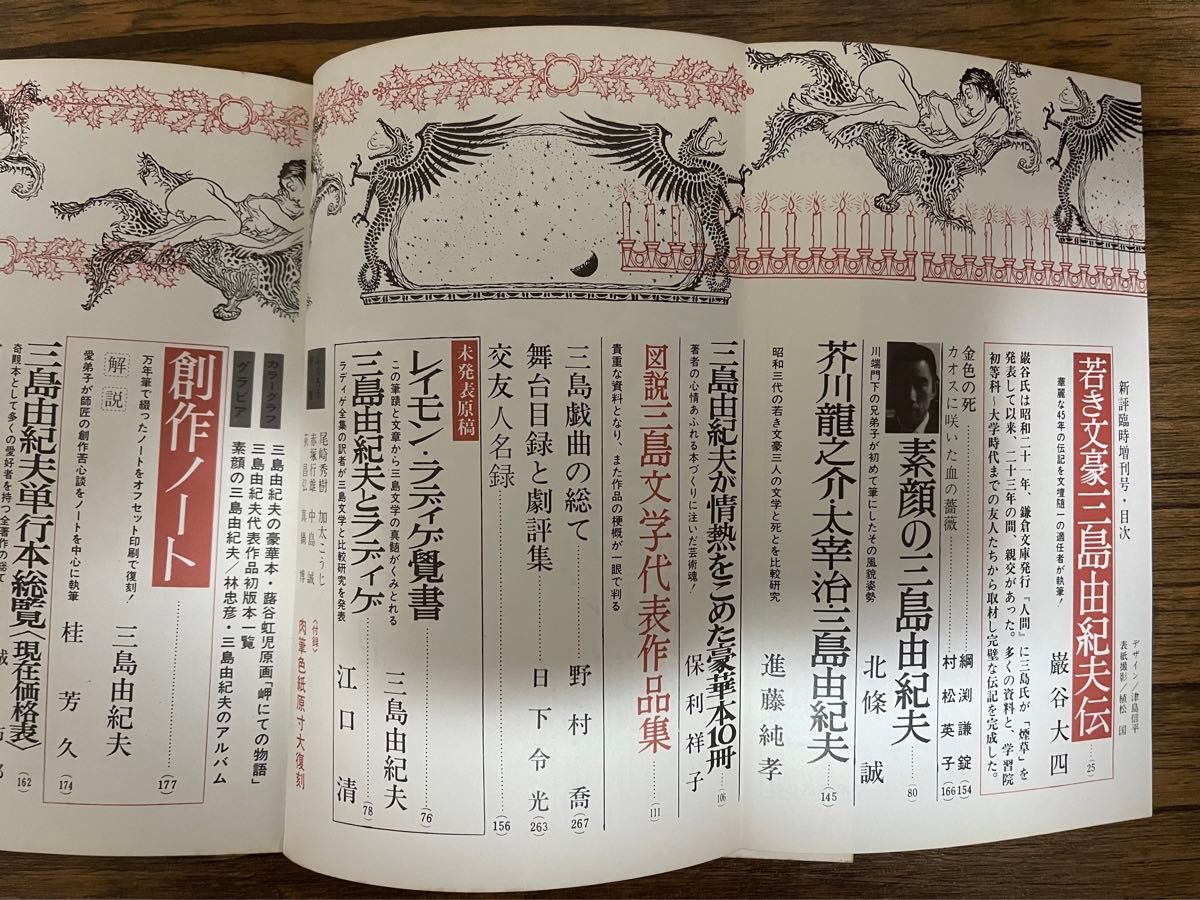 新評臨時増刊号・目次
デザイン/津島信平
表紙撮影/植松 国
若き文豪三島由紀夫伝
華麗な45年の伝記を文壇随一の適任者が執筆!
巌谷大四
(25)
巌谷氏は昭和二十一年、鎌倉文庫発行『人間』に三島氏が「煙草」を
発表して以来、二十三年の間、親交があった。多くの資料と、学習院
初等科~大学時代までの友人たちから取材し完璧な伝記を完成した。
金色の死
綱渕謙錠
(154)
カオスに咲いた血の薔薇
村松英子
(166)
素顔の三島由紀夫
川端門下の兄弟子が初めて筆にしたその風貌姿勢
北條 誠
(80)
芥川龍之介・太宰治・三島由紀夫
昭和三代の若き文豪三人の文学と死とを比較研究
進藤純孝
(145)
三島由紀夫が情熱をこめた豪華本10冊
著者の心情あふれる本づくりに注いだ芸術魂!
保利祥子
(106)
図説三島文学代表作品集
貴重な資料となり、また作品の梗概が一眼で判る
(111)
三島戯曲の総て
野村 喬
(267)
舞台目録と劇評集
日下令光
(263)
交友人名録
(156)
未発表原稿
レイモン・ラディゲ覺書
三島由紀夫
(76)
この筆蹟と文章から三島文学の真髄がくみとれる
三島由紀夫とラディゲ
江口 清
(78)
ラディゲ全集の訳者が三島文学と比較研究を発表
尾崎秀樹 加太こうじ
赤塚行雄 中島 誠
荻 昌弘 真鍋 博
〈付録〉
肉筆色紙原寸大復刻
カラーグラフ
グラビア
三島由紀夫の豪華本・蕗谷虹児原画「岬にての物語」
三島由紀夫代表作品初版本一覧
素顔の三島由紀夫/林忠彦・三島由紀夫のアルバム
創作ノート
三島由紀夫
(177)
万年筆で綴ったノートをオフセット印刷で復刻!
解説
桂 芳久
(174)
愛弟子が師匠の創作苦心談をノートを中心に執筆
三島由紀夫単行本総覧〈現在価格表〉
(162)
奇覯本として多くの愛好者を持つ全著作の総て